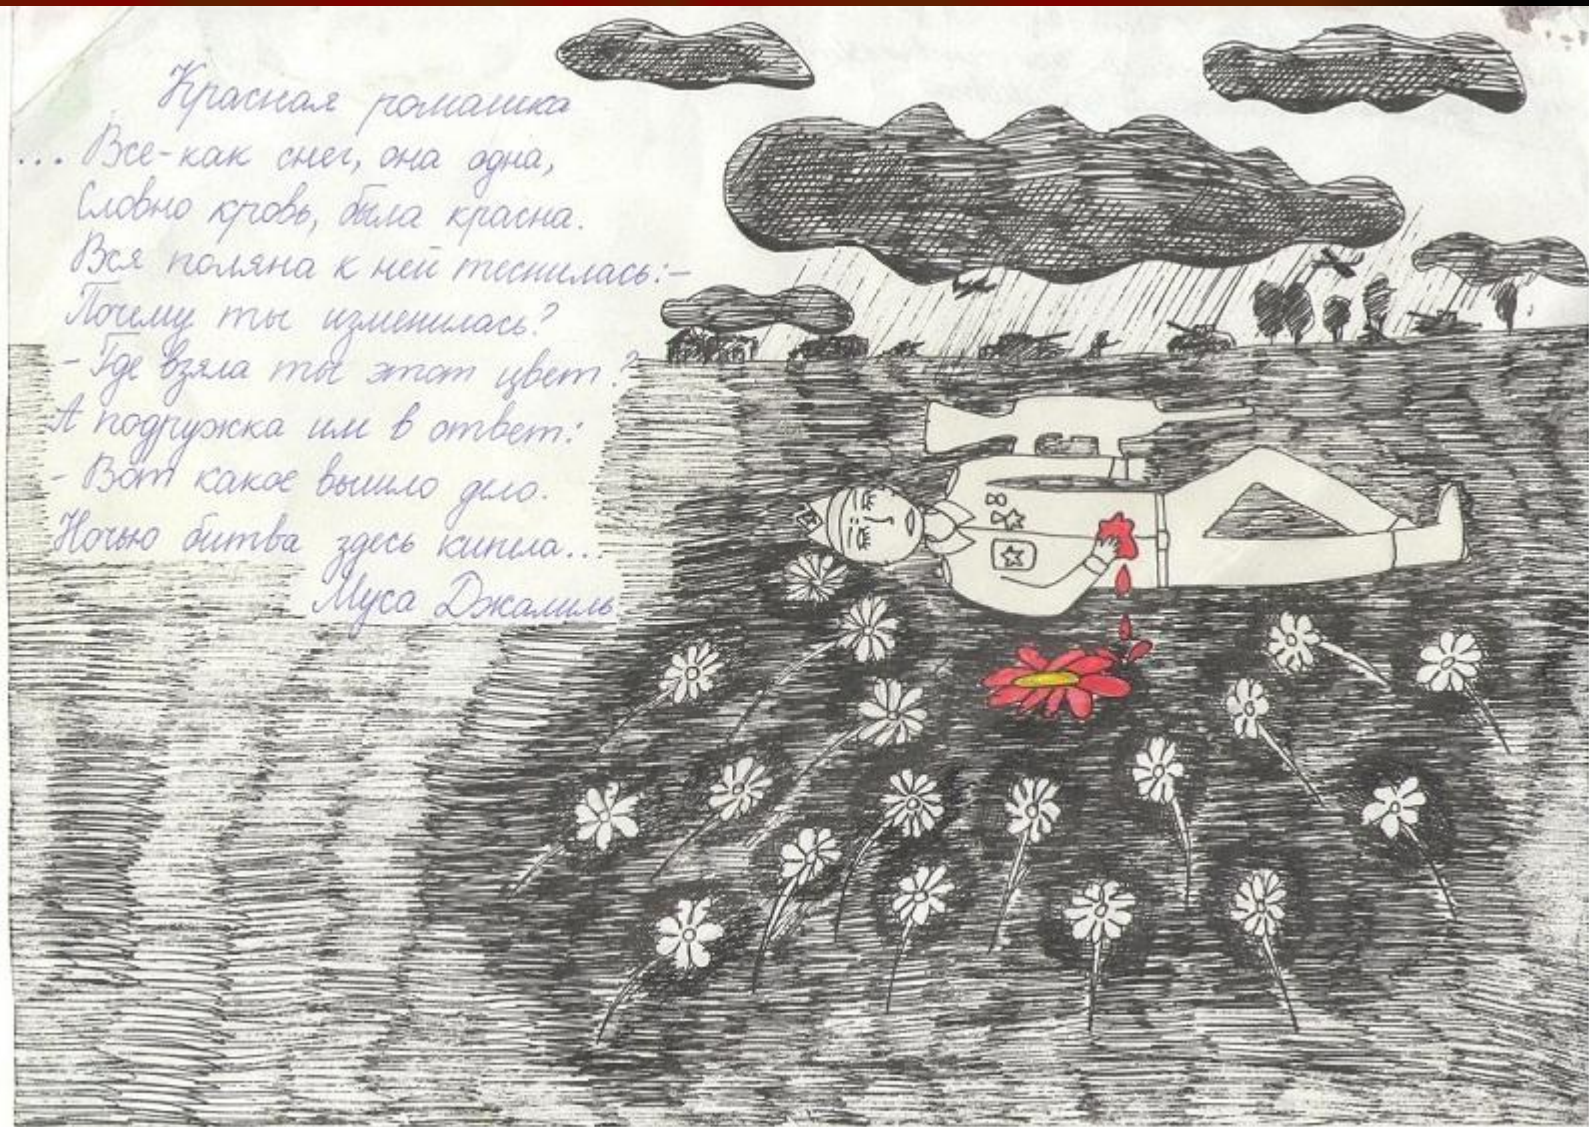 Красная ромашка
... Все-как снег, она одна,
Словно кровь, была красна.
Вся поляна к ней теснилась:-
Почему ты изменилась?
- Где взяла ты этот цвет?
А подружка им в ответ:
- Вот какое вышло дело.
Ночью битва здесь кипела...
Муса Джалиль